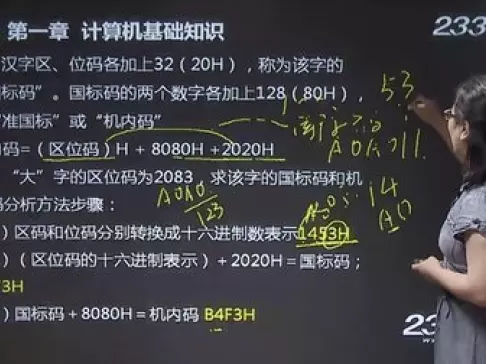 第一章 计算机基础知识
233
汉字区、位码各加上32（20H），称为该字的
标码”。国标码的两个数字各加上128（80H），
准国标”或“机内码”
码=（区位码）H + 8080H +2020H
“大”字的区位码为2083，求该字的国标码和机
码分析方法步骤：
）区码和位码分别转换成十六进制数表示1453H
）（区位码的十六进制表示）+2020H=国标码；
3H
）国标码+8080H=机内码 B4F3H
53
A0A0
123
14
A0
23